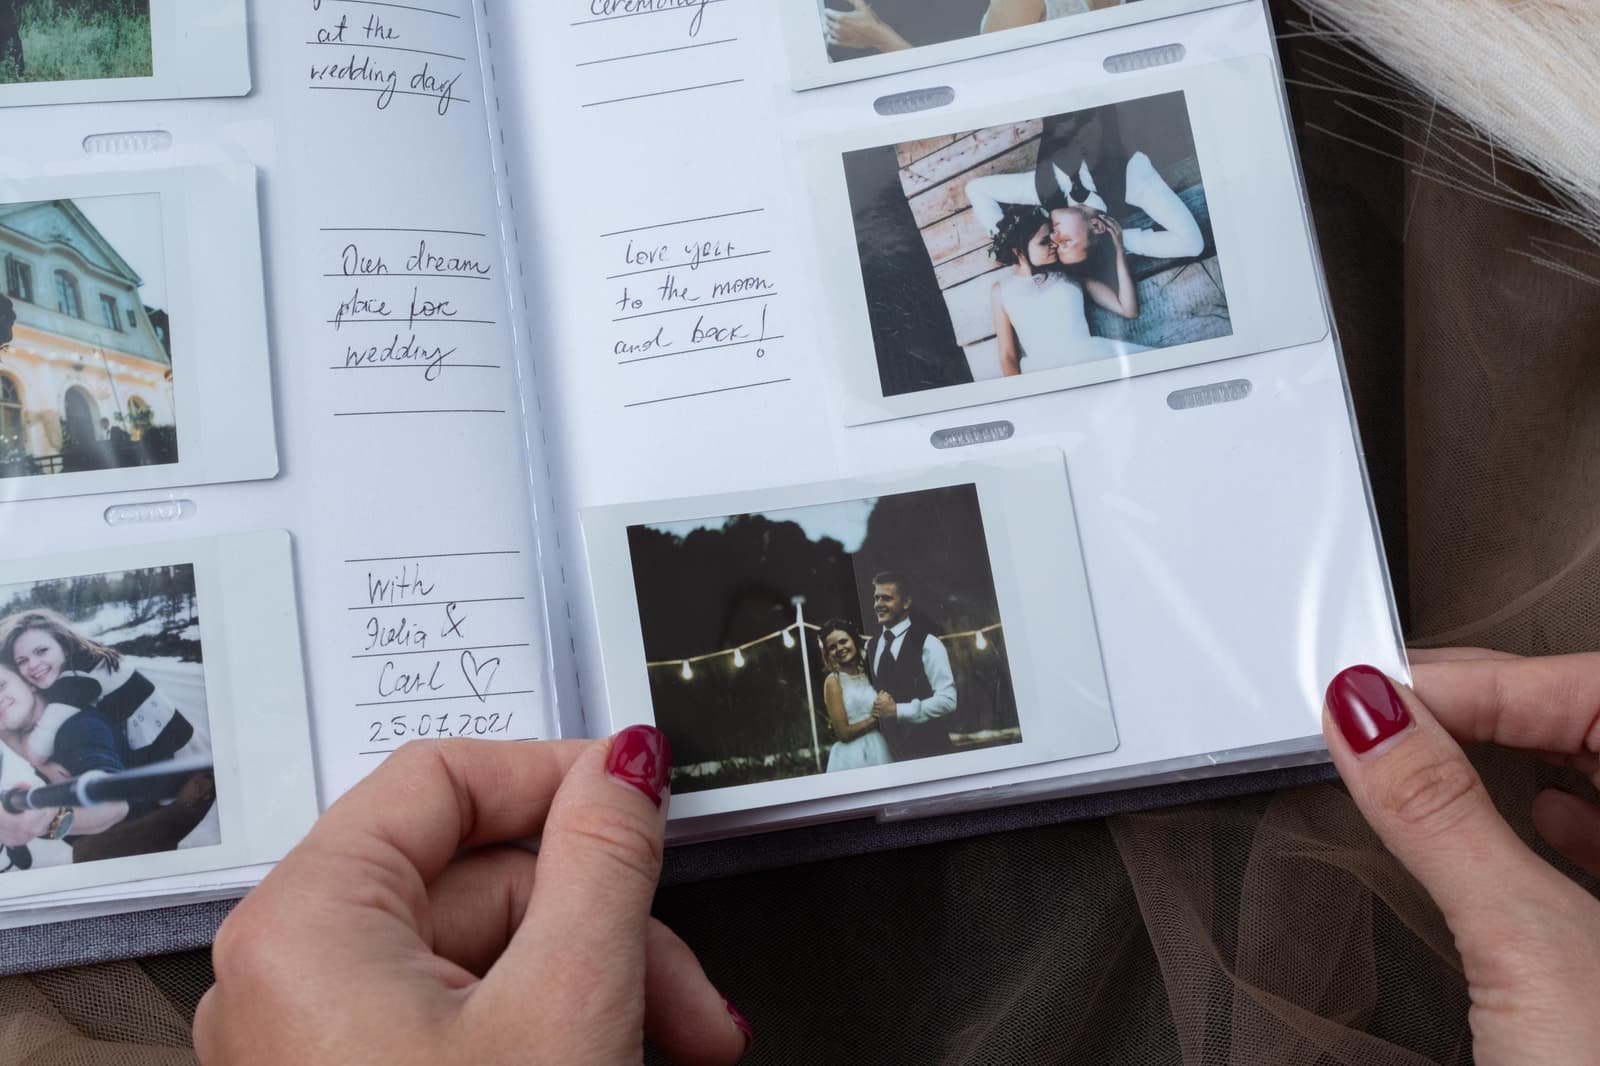 at the
wedding day
Our dream
place for
wedding
With
Julia &
Carl ♡
25.07.2021
ceremony
Love you
to the moon
and back!